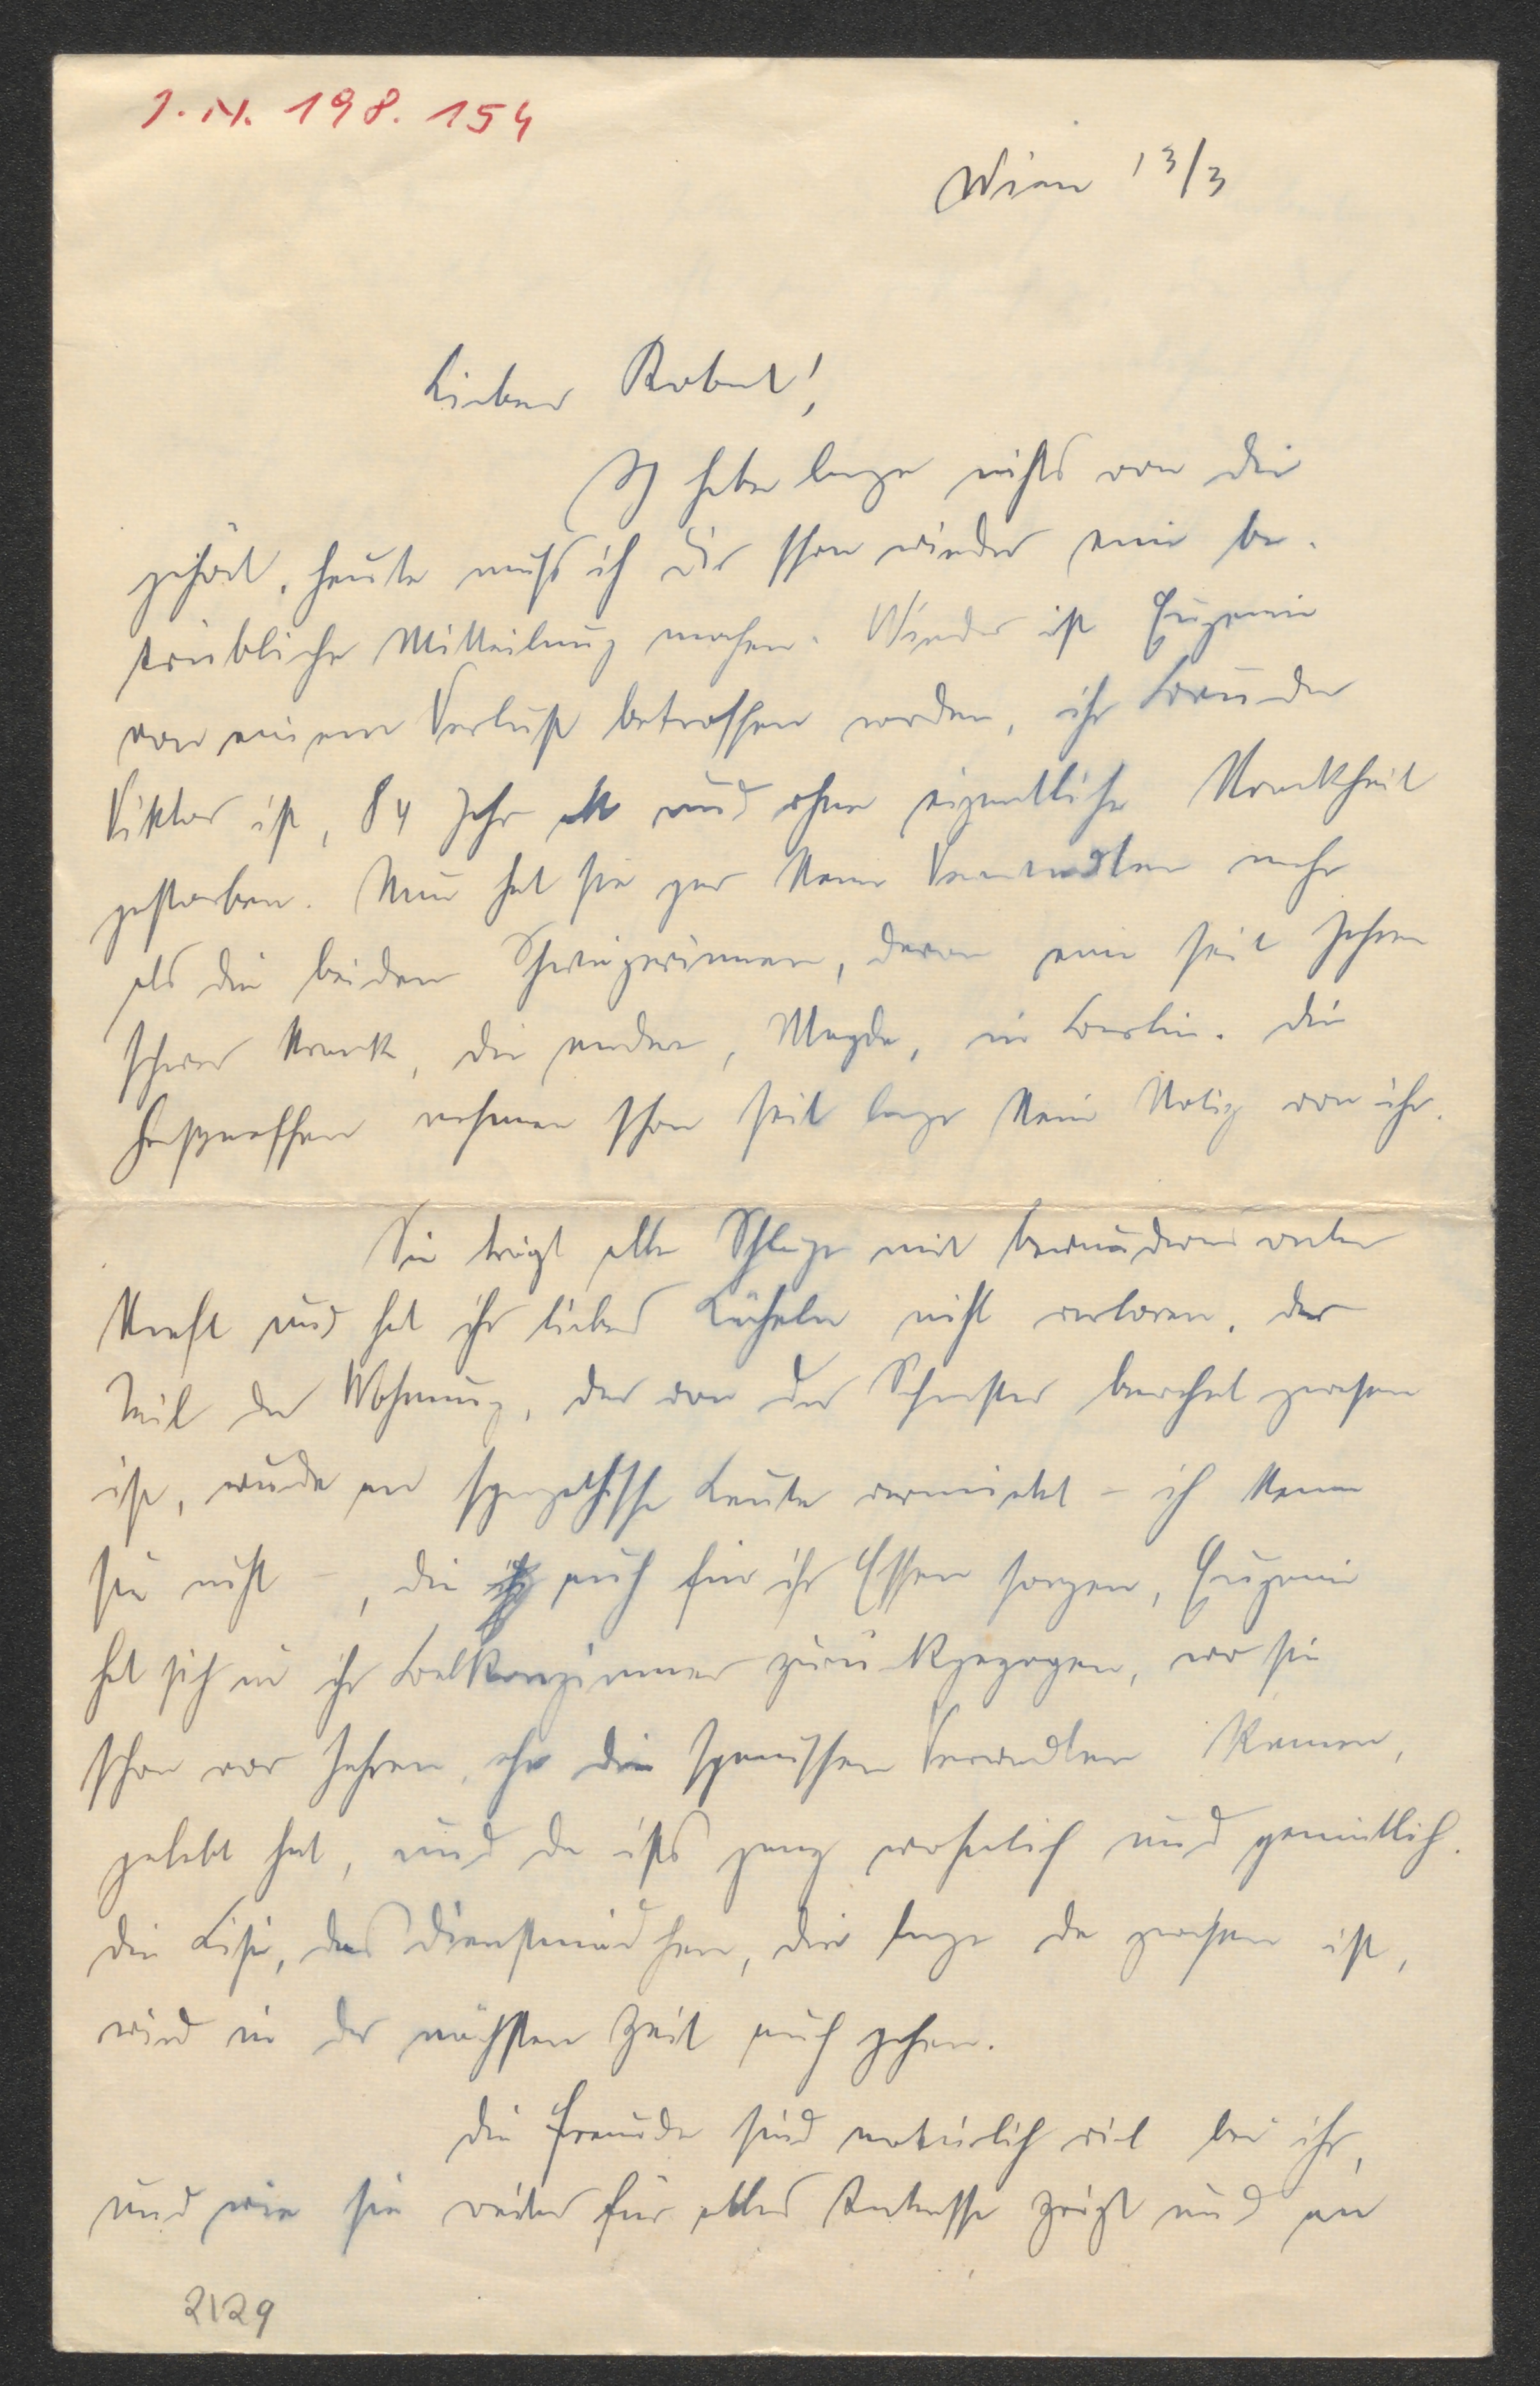 J. N. 198. 154
Wien 13/3
Lieber Robert!
Ich habe lange nichts von dir
gehört, heute muß ich dir schon wieder eine be-
trübliche Mitteilung machen. Wieder ist Eugenie
von einem Verlust betroffen worden, ihr Bruder
Viktor ist, 84 Jahr alt und ohne eigentliche Krankheit
gestorben. Nun hat sie gar keine Verwandten mehr
als die beiden Schwägerinnen, deren eine seit Jahren
schwer krank, die andere, Magda, in Berlin. Die
nehmen schon seit lange keine Notiz von ihr.
Sie trägt alle Schläge mit bewundernswerter
Kraft und hat ihr liebes Lächeln nicht verloren. Der
Teil der Wohnung, der von der Schwester bewohnt gewesen
ist, wurde an sympathische Leute vermietet – ich kenne
sie nicht –, die auch für ihr Essen sorgen, Eugenie
hat sich in ihr Balkonzimmer zurückgezogen, wo sie
schon vor Jahren, ehe die spanischen Verwandten kamen,
gelebt hat, und da ists ganz wohnlich und gemütlich.
Die Lisi, das Dienstmädchen, die lange da gewesen ist,
wird in der nächsten Zeit auch gehen.
Die Freunde sind natürlich viel bei ihr,
und wie sie weiter für alles Interesse zeigt und an
2129